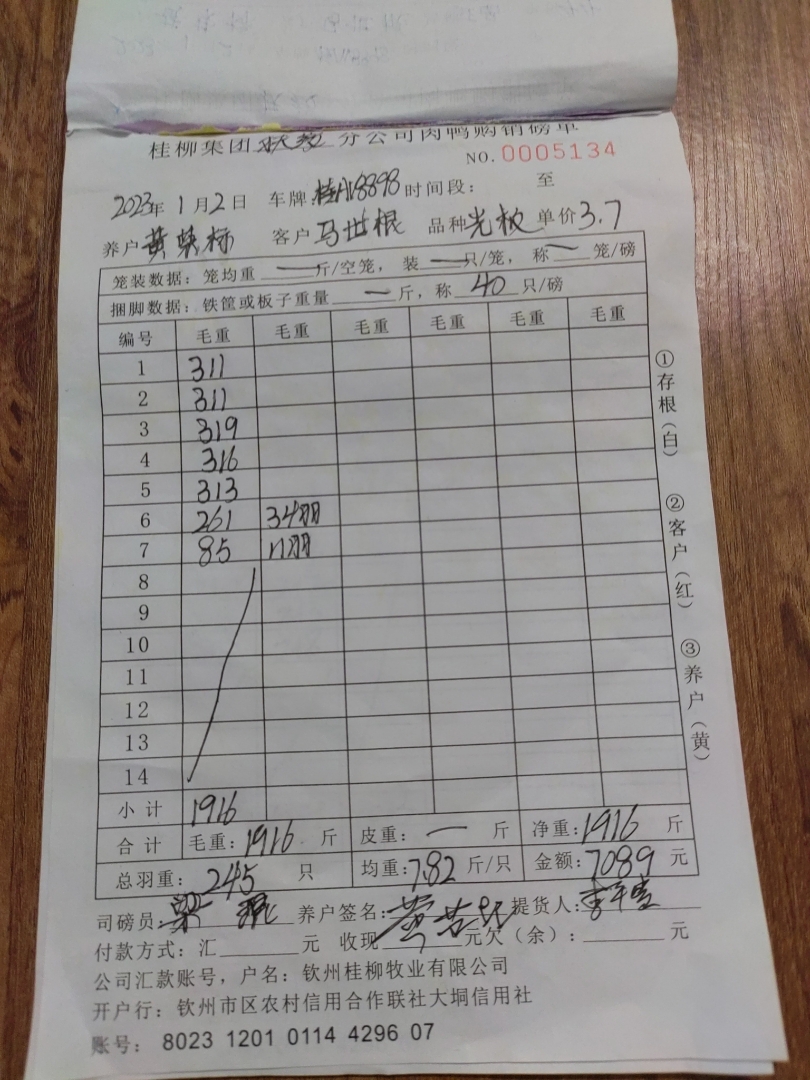 桂柳集团 分公司肉鸭购销磅单
NO. 0005134
2023年 1月2日 车牌: 8898 时间段: 至
养户 黄 标 客户 马世根 品种 单价 3.7
笼装数据: 笼均重 — 斤/空笼, 装 — 只/笼, 称 — 笼/磅
捆脚数据: 铁筐或板子重量 — 斤, 称 40 只/磅
编号 毛重 毛重 毛重 毛重 毛重 毛重
1 311
2 311
3 319
4 316
5 313
6 261 34
7 85 11
8
9
10
11
12
13
14
小计 1916
合计 毛重: 1916 斤 皮重: — 斤 净重: 1916 斤
总羽重: 245 只 均重: 7.82 斤/只 金额: 7089 元
司磅员: 养户签名: 提货人:
付款方式: 汇 元 收现 元欠(余): 元
公司汇款账号, 户名: 钦州桂柳牧业有限公司
开户行: 钦州市区农村信用合作联社大垌信用社
账号: 8023 1201 0114 4296 07
①存根(白)
②客户(红)
③养户(黄)